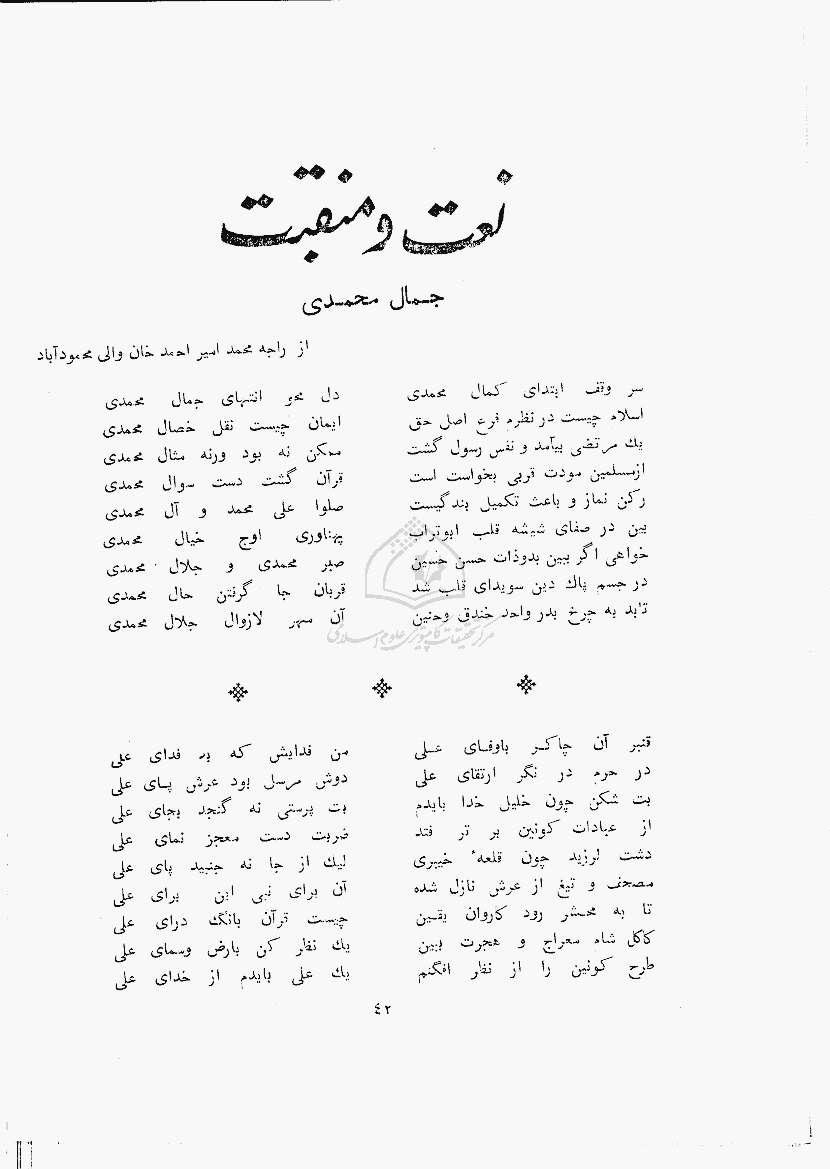 نعت و منقبت
جمال محمدی
از راجه محمد امیر احمد خان والی محمودآباد
سر وقف ابتدای کمال محمدی دل محو انتهای جمال محمدی
اسلام چیست در نظرم فرع اصل حق ایمان چیست نقل خصال محمدی
یك مرتضی بیآمد و نفس رسول گشت ممکن نه بود ورنه مثال محمدی
ازمسلمین مودت قربی بخواست است قرآن گشت دست سوال محمدی
رکن نماز و باعث تکمیل بندگیست صلوا علی محمد و آل محمدی
بین در صفای شیشه قلب ابوتراب پهناوری اوج خیال محمدی
خواهی اگر ببین بدوذات حسن حسین صبر محمدی و جلال محمدی
در جسم پاك دین سویدای قلب شد قربان جا گرفتن حال محمدی
تابد به چرخ بدر واحد خندق وحنین آن مهر لازوال جلال محمدی
قنبر آن چاکر باوفای علی من فدایش که بد فدای علی
در حرم در نگر ارتقای علی دوش مرسل بود عرش پای علی
بت شکن چون خلیل خدا بایدم بت پرستی نه گنجد بجای علی
از عبادات کونین بر تر فتد ضربت دست معجز نمای علی
دشت لرزید چون قلعهٔ خیبری لیك از جا نه جنبید پای علی
مصحف و تیغ از عرش نازل شده آن برای نبی این برای علی
تا به محشر رود کاروان یقین چیست قرآن بانگ درای علی
کاکل شاه معراج و هجرت ببین یك نظر کن بارض وسمای علی
طرح کونین را از نظر افگنم یك علی بایدم از خدای علی
٤٢
مرکز تحقیقات کامپیوتری علوم اسلامی